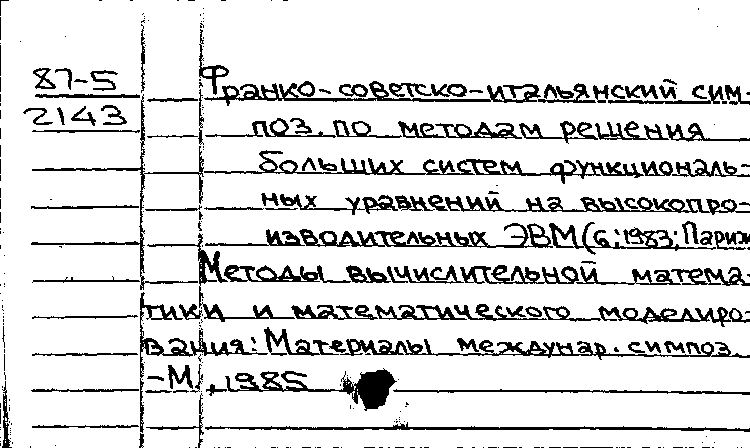 87-5
2143
Франко-советско-итальянский сим-
поз. по методам решения
больших систем функциональ-
ных уравнений на высокопро-
изводительных ЭВМ (6; 1983; Париж
Методы вычислительной матема-
тики и математического моделиро-
вания: Материалы междунар. симпоз.
-М., 1985